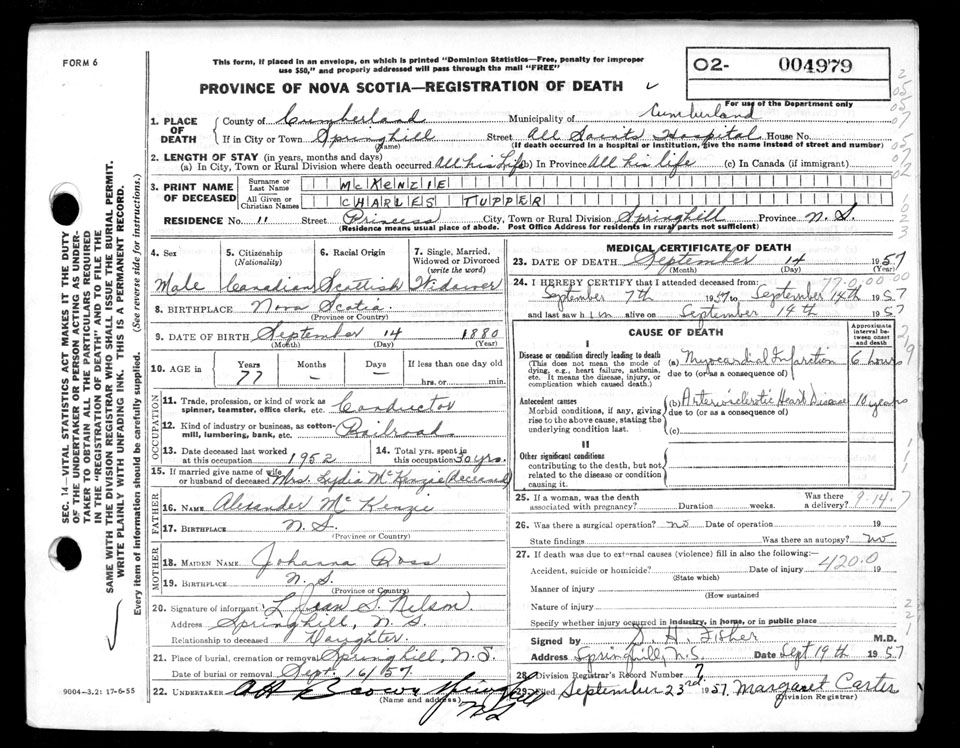 FORM 6
This form, if placed in an envelope, on which is printed "Dominion Statistics—Free, penalty for improper
use $50," and properly addressed will pass through the mail "FREE"
O2- 004979
PROVINCE OF NOVA SCOTIA—REGISTRATION OF DEATH
For use of the Department only
1. PLACE OF DEATH
County of Cumberland Municipality of Cumberland
If in City or Town Springhill Street All Saints Hospital House No.
(Name) (If death occurred in a hospital or institution, give the name instead of street and number)
2. LENGTH OF STAY (in years, months and days)
(a) In City, Town or Rural Division where death occurred All his Life (b) In Province All his life (c) In Canada (if immigrant)
3. PRINT NAME OF DECEASED
Surname or Last Name McKENZIE
All Given or Christian Names CHARLES TUPPER
RESIDENCE No. 11 Street Princess City, Town or Rural Division Springhill Province N. S.
(Residence means usual place of abode. Post Office Address for residents in rural parts not sufficient)
4. Sex 5. Citizenship (Nationality) 6. Racial Origin 7. Single, Married, Widowed or Divorced (write the word)
Male Canadian Scottish Widower
8. BIRTHPLACE Nova Scotia
(Province or Country)
9. DATE OF BIRTH September 14 1880
(Month) (Day) (Year)
10. AGE in Years Months Days If less than one day old
77 — — hrs. or min.
OCCUPATION
11. Trade, profession, or kind of work as spinner, teamster, office clerk, etc. Conductor
12. Kind of industry or business, as cotton-mill, lumbering, bank, etc. Railroad
13. Date deceased last worked at this occupation 1952
14. Total yrs. spent in this occupation 30 yrs.
15. If married give name of wife or husband of deceased Mrs. Lydia McKenzie
FATHER
16. NAME Alexander McKenzie
17. BIRTHPLACE N. S.
(Province or Country)
MOTHER
18. MAIDEN NAME Johanna Ross
19. BIRTHPLACE N. S.
(Province or Country)
20. Signature of informant Jean S. Nelson
Address Springhill, N. S.
Relationship to deceased Daughter.
21. Place of burial, cremation or removal Springhill, N.S.
Date of burial or removal Sept. 16/57.
22. UNDERTAKER Springhill
(Name and address) N S
MEDICAL CERTIFICATE OF DEATH
23. DATE OF DEATH September 14 1957
(Month) (Day) (Year)
24. I HEREBY CERTIFY that I attended deceased from:
September 7th 1957 to September 14th 1957
and last saw him alive on September 14th 1957
CAUSE OF DEATH
Approximate interval between onset and death
I
Disease or condition directly leading to death (a) Myocardial Infarction 6 hours
(This does not mean the mode of dying, e.g., heart failure, asthenia, etc. It means the disease, injury, or complication which caused death.)
due to (or as a consequence of)
Antecedent causes (b) Arteriosclerotic Heart Disease 10 years
Morbid conditions, if any, giving rise to the above cause, stating the underlying condition last.
due to (or as a consequence of)
(c)
II
Other significant conditions
contributing to the death, but not related to the disease or condition causing it.
25. If a woman, was the death associated with pregnancy? Duration weeks. Was there a delivery?
9-14-7
26. Was there a surgical operation? no Date of operation 19
State findings Was there an autopsy? no
27. If death was due to external causes (violence) fill in also the following:—
Accident, suicide or homicide? Date of injury 19
420.0
(State which)
Manner of injury
(How sustained)
Nature of injury
Specify whether injury occurred in industry, in home, or in public place
Signed by D. H. Fisher M.D.
Address Springhill, N.S. Date Sept 19th 1957
28. Division Registrar's Record Number
29. Filed September 23rd 1957. Margaret Carter
(Division Registrar)
SEC. 14—VITAL STATISTICS ACT MAKES IT THE DUTY
OF THE UNDERTAKER OR PERSON ACTING AS UNDER-
TAKER TO OBTAIN ALL THE PARTICULARS REQUIRED
IN THE "REGISTRATION OF DEATH" AND TO FILE THE
SAME WITH THE DIVISION REGISTRAR WHO SHALL ISSUE THE BURIAL PERMIT.
WRITE PLAINLY WITH UNFADING INK. THIS IS A PERMANENT RECORD.
Every item of information should be carefully supplied. (See reverse side for instructions.)
9004-3.2: 17-6-55